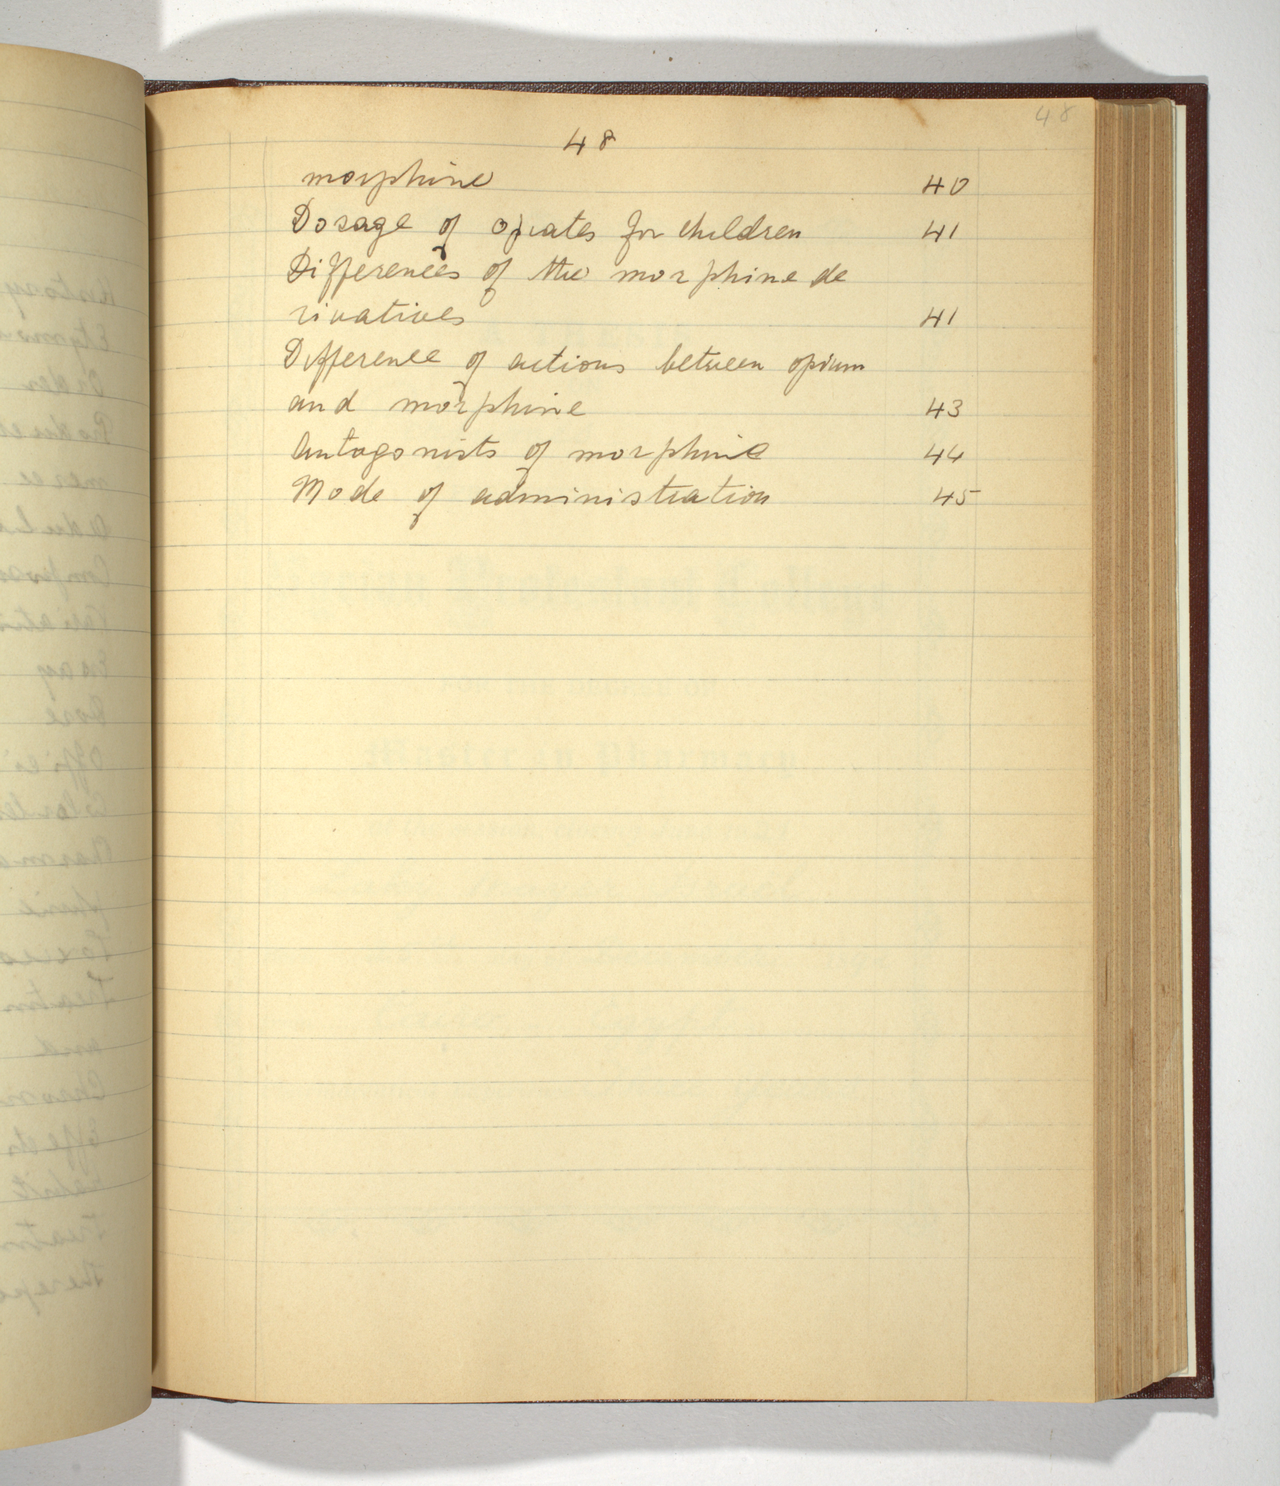 48
48
morphine 40
Dosage of opiates for children 41
Differences of the morphine de
rivatives 41
Difference of actions between opium
and morphine 43
Antagonists of morphine 44
Mode of administration 45